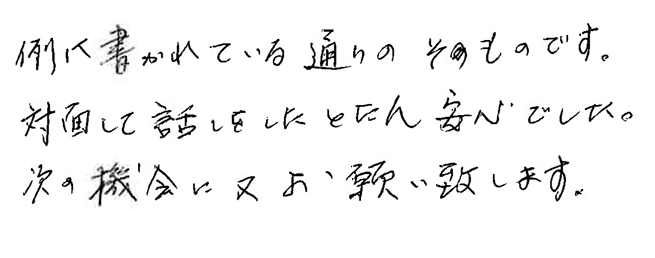 例に書かれている通りのそのものです。
対面して話しをしたとたん安心でした。
次の機会に又お願い致します。